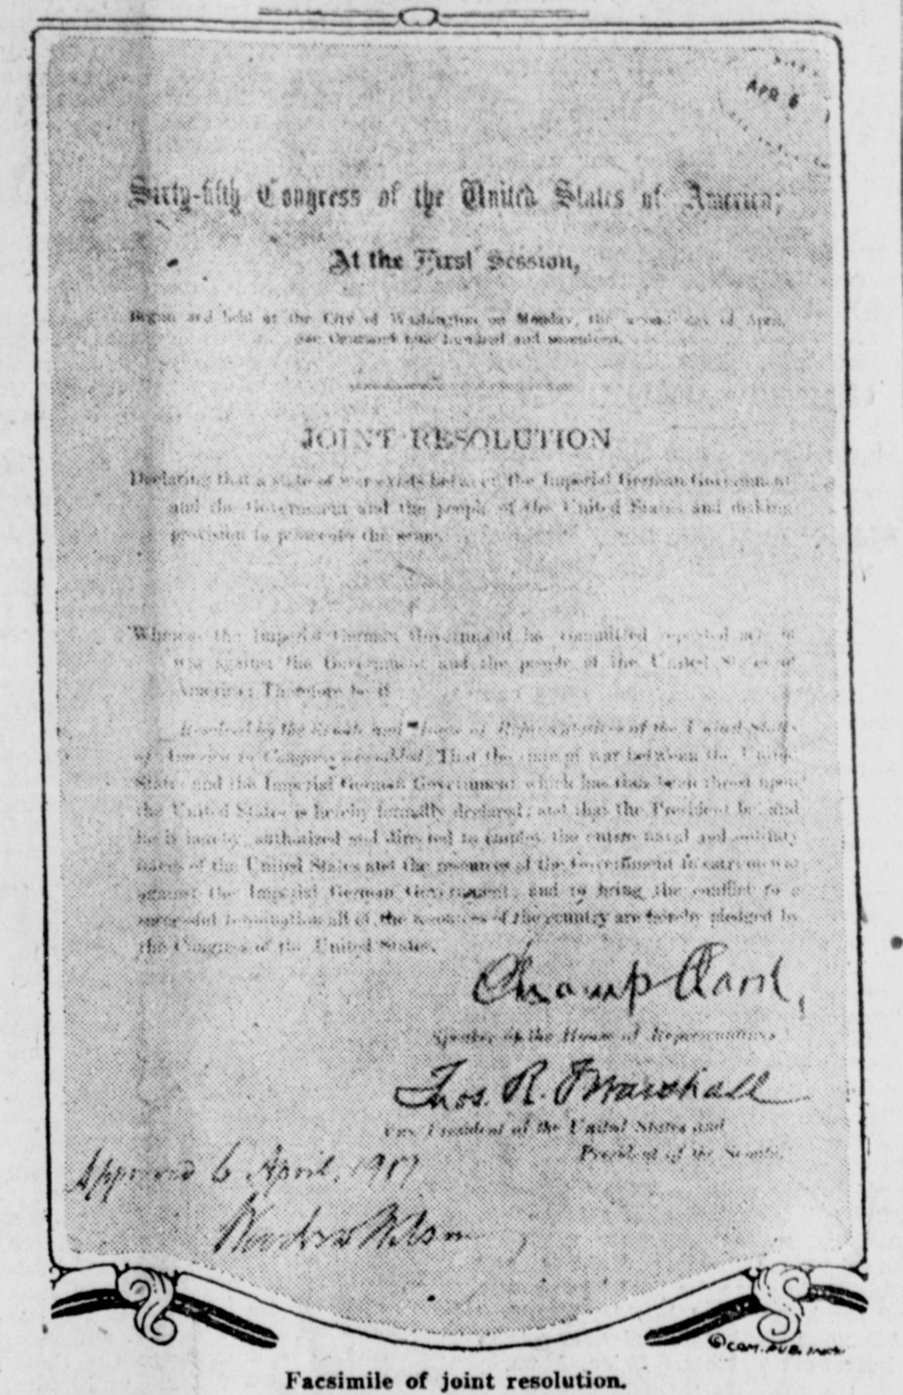 APR 6
Sixty-fifth Congress of the United States of America;
At the First Session,
Begun and held at the City of Washington on Monday, the second day of April,
one thousand nine hundred and seventeen.
JOINT RESOLUTION
Declaring that a state of war exists between the Imperial German Government
and the Government and the people of the United States and making
provision to prosecute the same.
Whereas the Imperial German Government has committed repeated acts of
war against the Government and the people of the United States of
America: Therefore be it
Resolved by the Senate and House of Representatives of the United States
of America in Congress assembled, That the state of war between the United
States and the Imperial German Government which has thus been thrust upon
the United States is hereby formally declared; and that the President be, and
he is hereby, authorized and directed to employ the entire naval and military
forces of the United States and the resources of the Government to carry on war
against the Imperial German Government; and to bring the conflict to a
successful termination all of the resources of the country are hereby pledged by
the Congress of the United States.
Champ Clark
Speaker of the House of Representatives
Thos. R. Marshall
Vice President of the United States and
President of the Senate.
Approved 6 April, 1917
Woodrow Wilson
© COM. PUB.
Facsimile of joint resolution.